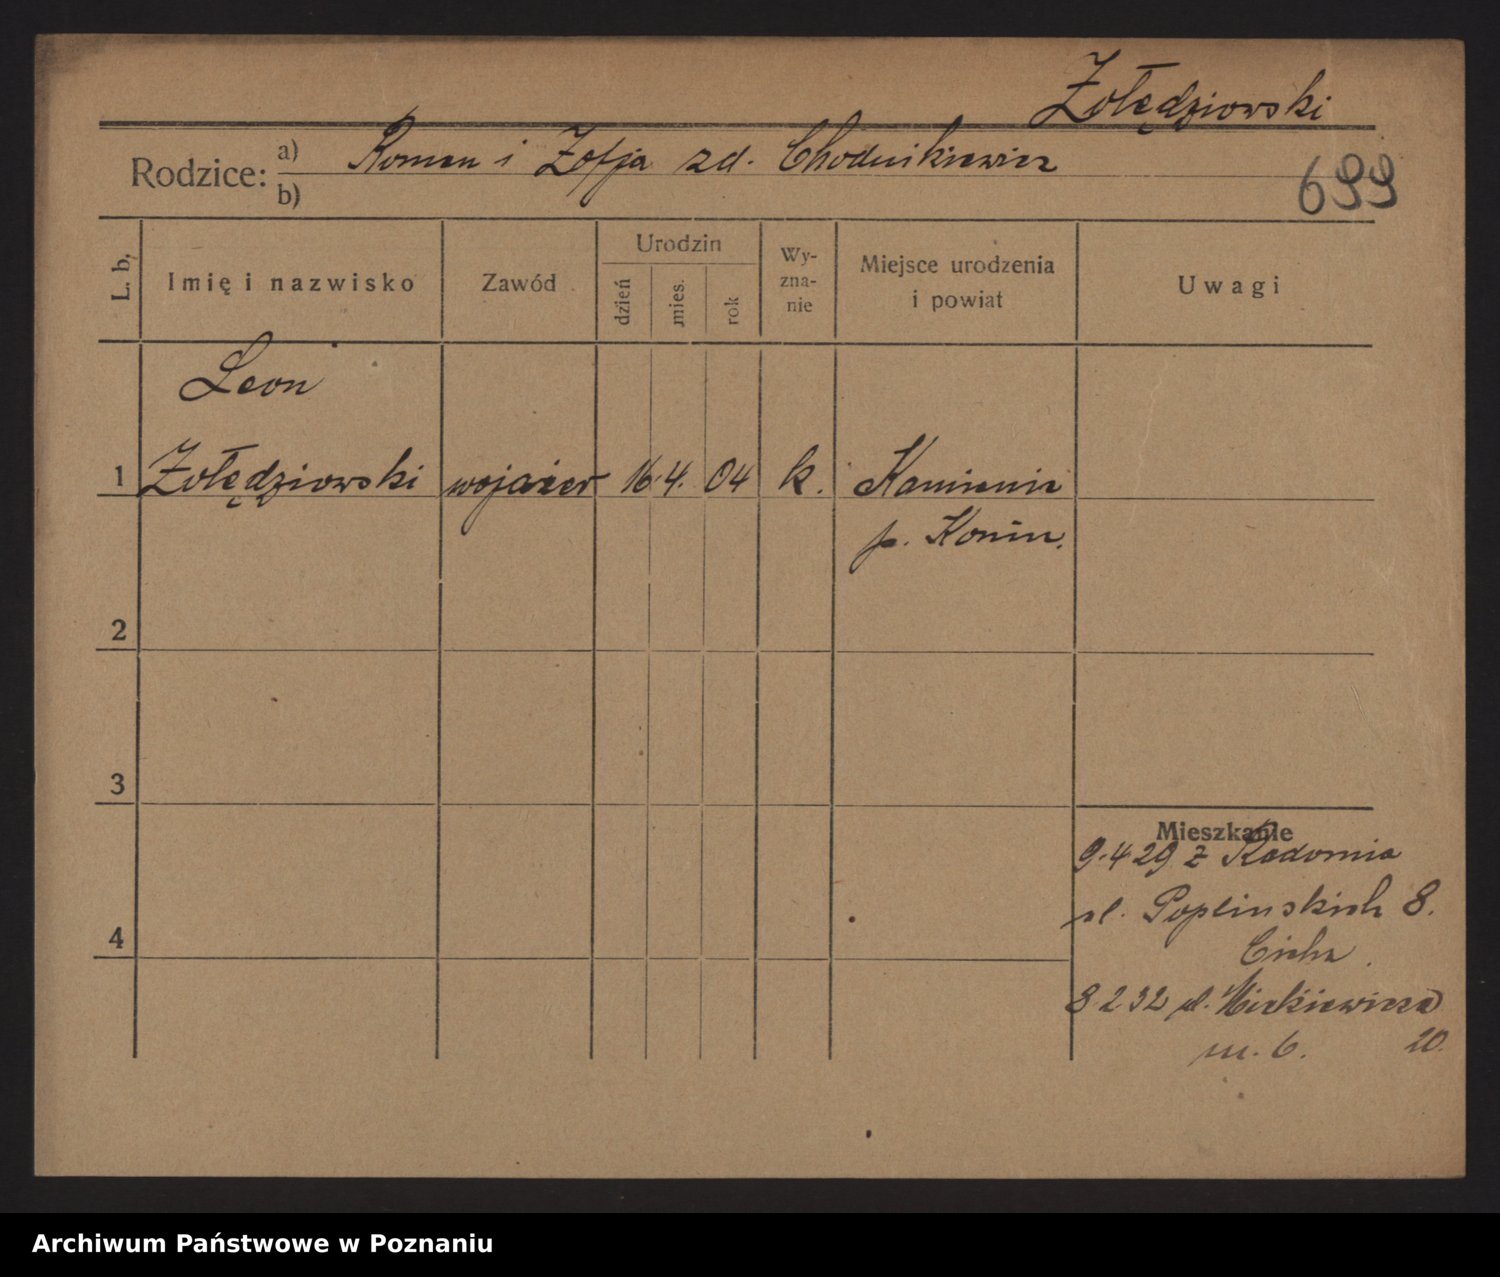 Żołędziowski
Rodzice: a) Roman i Zofja zd. Chodnikiewicz
b)
699
L. b.
Imię i nazwisko
Zawód
Urodzin
dzień
mies.
rok
Wy-
zna-
nie
Miejsce urodzenia
i powiat
Uwagi
Leon
1 Żołędziowski wojażer 16. 4. 04 k. Kamienie
p. Konin.
2
3
Mieszkanie
9.4 29 z Radomia
ul. Poplinskich 8.
4
Cicha.
8 2 32 ul. Mickiewicza
20.
m. 6.
Archiwum Państwowe w Poznaniu